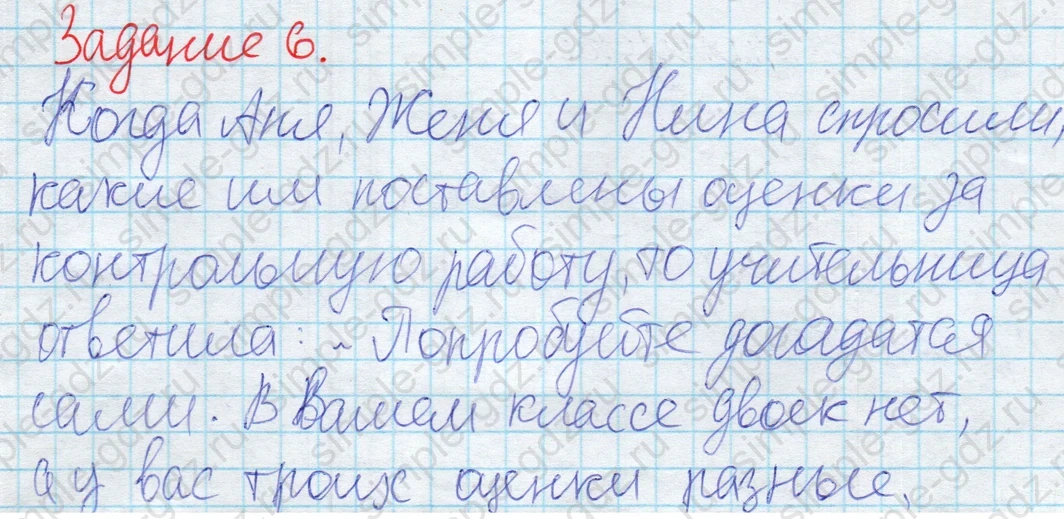 Задание 6.
Когда Аня, Женя и Нина спросили,
какие им поставлены оценки за
контрольную работу, то учительница
ответила: - Попробуйте догадатся
сами. В Вашем классе двоек нет,
а у вас троих оценки разные,